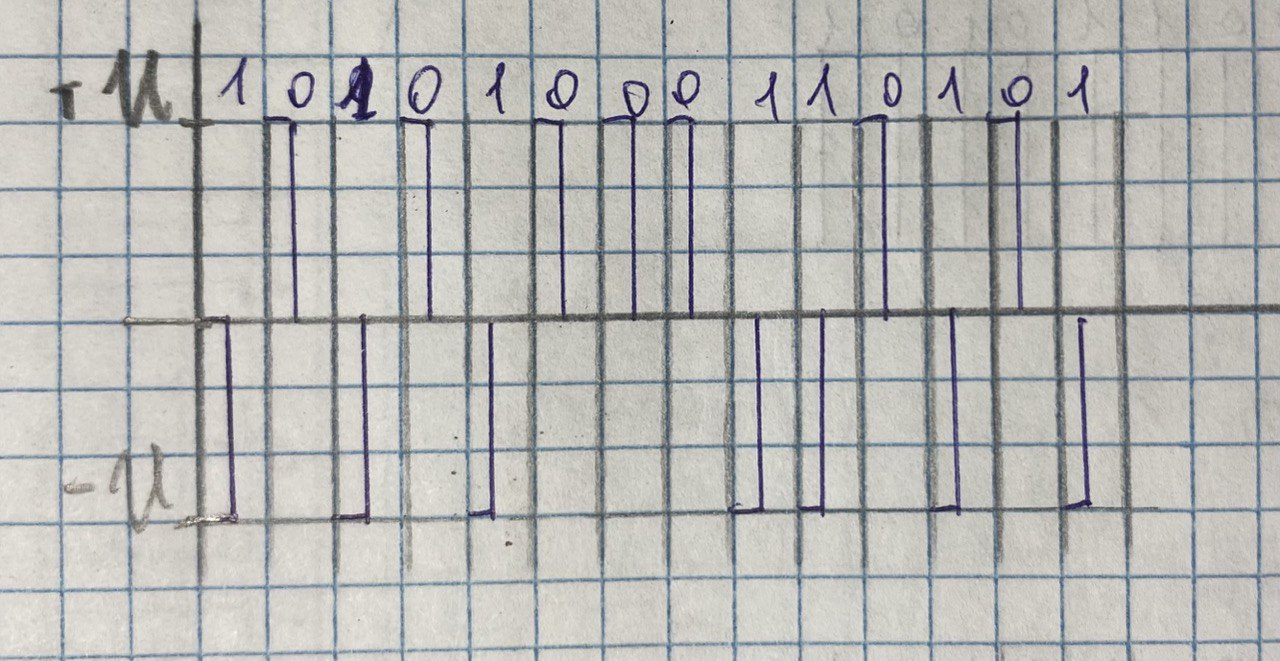 +U 1 0 1 0 1 0 0 0 1 1 0 1 0 1
-U